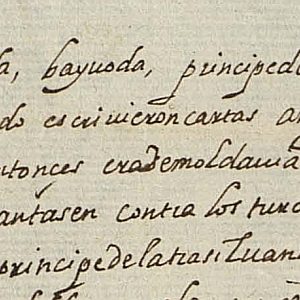 a, bayuoda, principed
do escriuieron cartas a
ntonces erade moldauia
antasen contra los turc
principe de latrasiluan